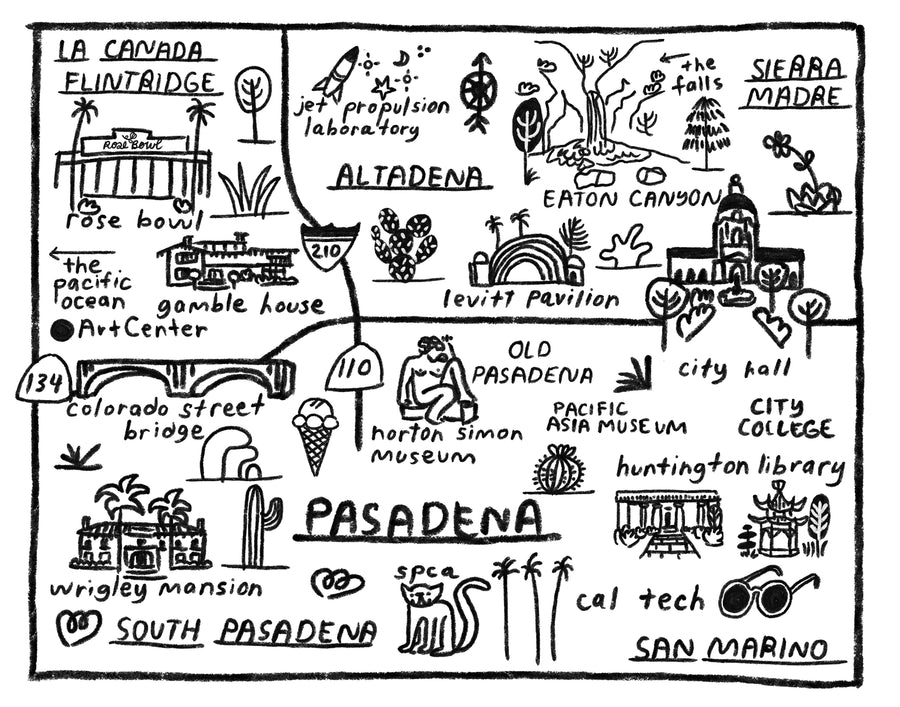 LA CANADA
FLINTRIDGE
Rose Bowl
rose bowl
jet propulsion
laboratory
the
falls
SIERRA
MADRE
ALTADENA
EATON CANYON
210
the
pacific
ocean
gamble house
levitt pavilion
ArtCenter
city hall
134
110
colorado street
bridge
OLD
PASADENA
norton simon
museum
PACIFIC
ASIA MUSEUM
CITY
COLLEGE
huntington library
PASADENA
wrigley mansion
spca
cal tech
SOUTH PASADENA
SAN MARINO